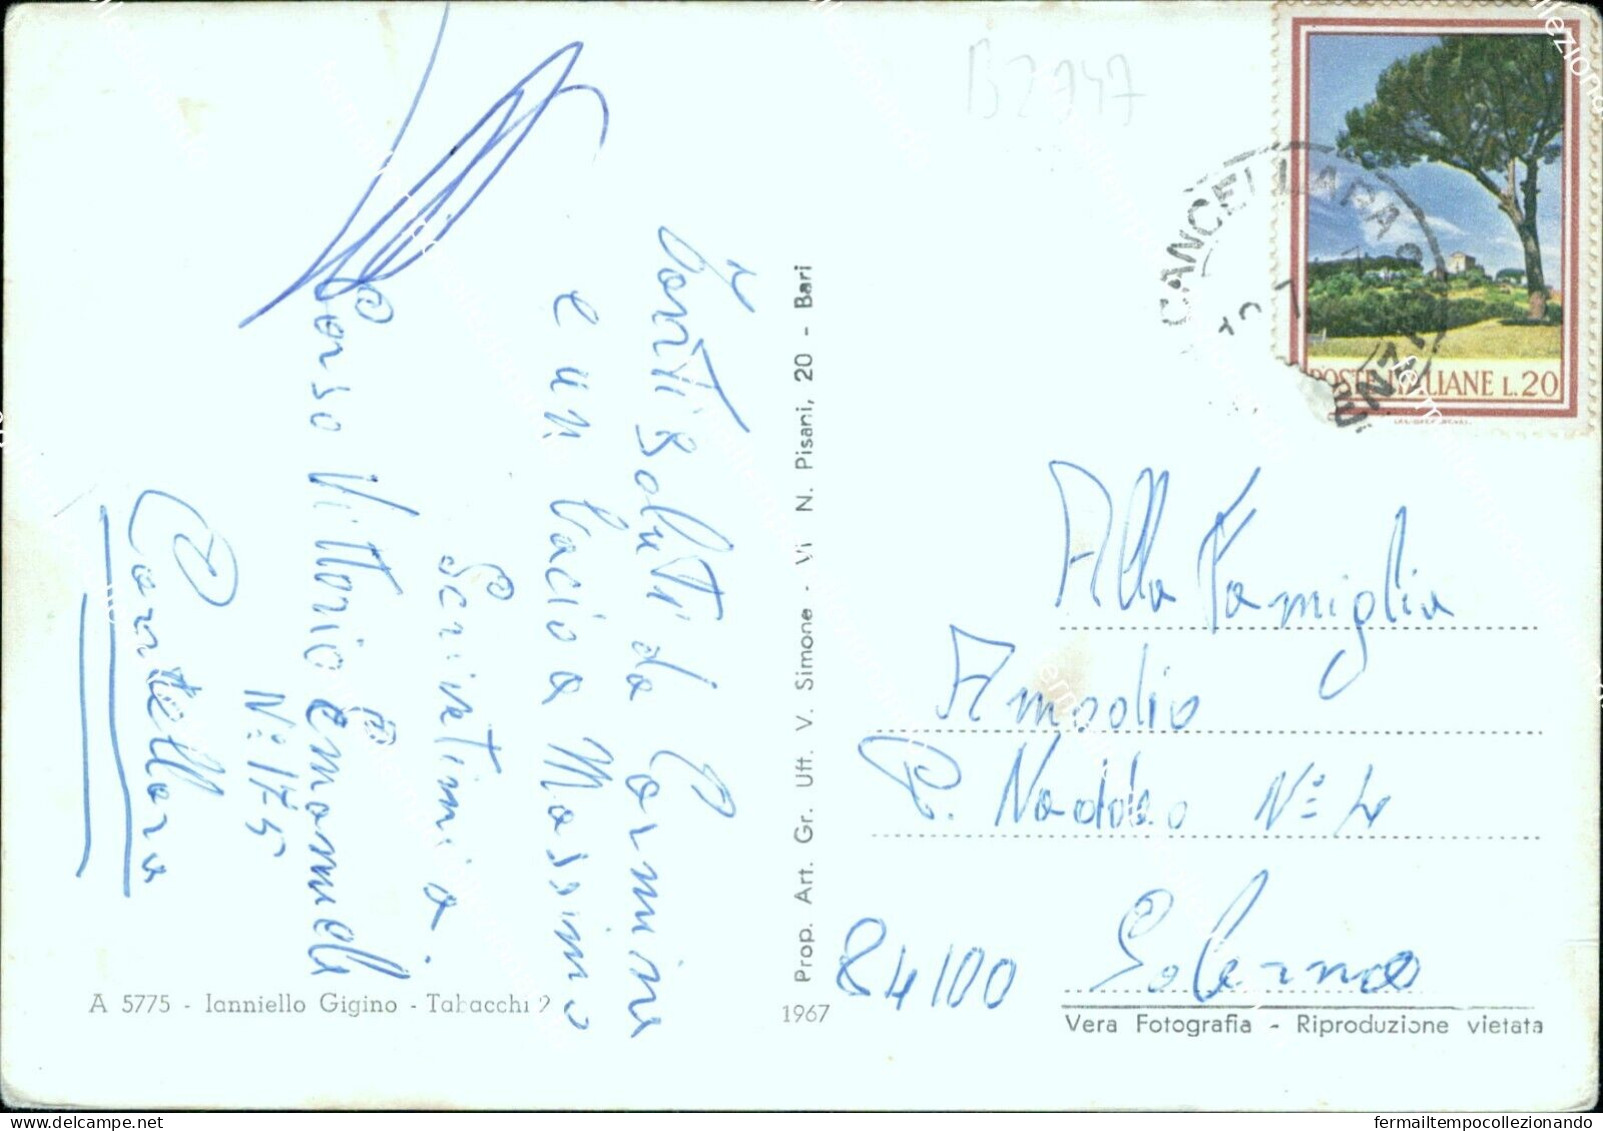 Tanti Saluti da Carmine
e un bacio a Massimo
Scrivetimi a.
Corso Vittorio Emanuele
N: 175
Cancellara
A 5775 - Ianniello Gigino - Tabacchi 2
Prop. Art. Gr. Uff. V. Simone - Vi N. Pisani, 20 - Bari
1967
B2747
CANCELLARA
POSTE ITALIANE L.20
Alla Famiglia
Amodio
P. Naddeo N: 4
84100 Salerno
Vera Fotografia - Riproduzione vietata
fermailtempocollezionando